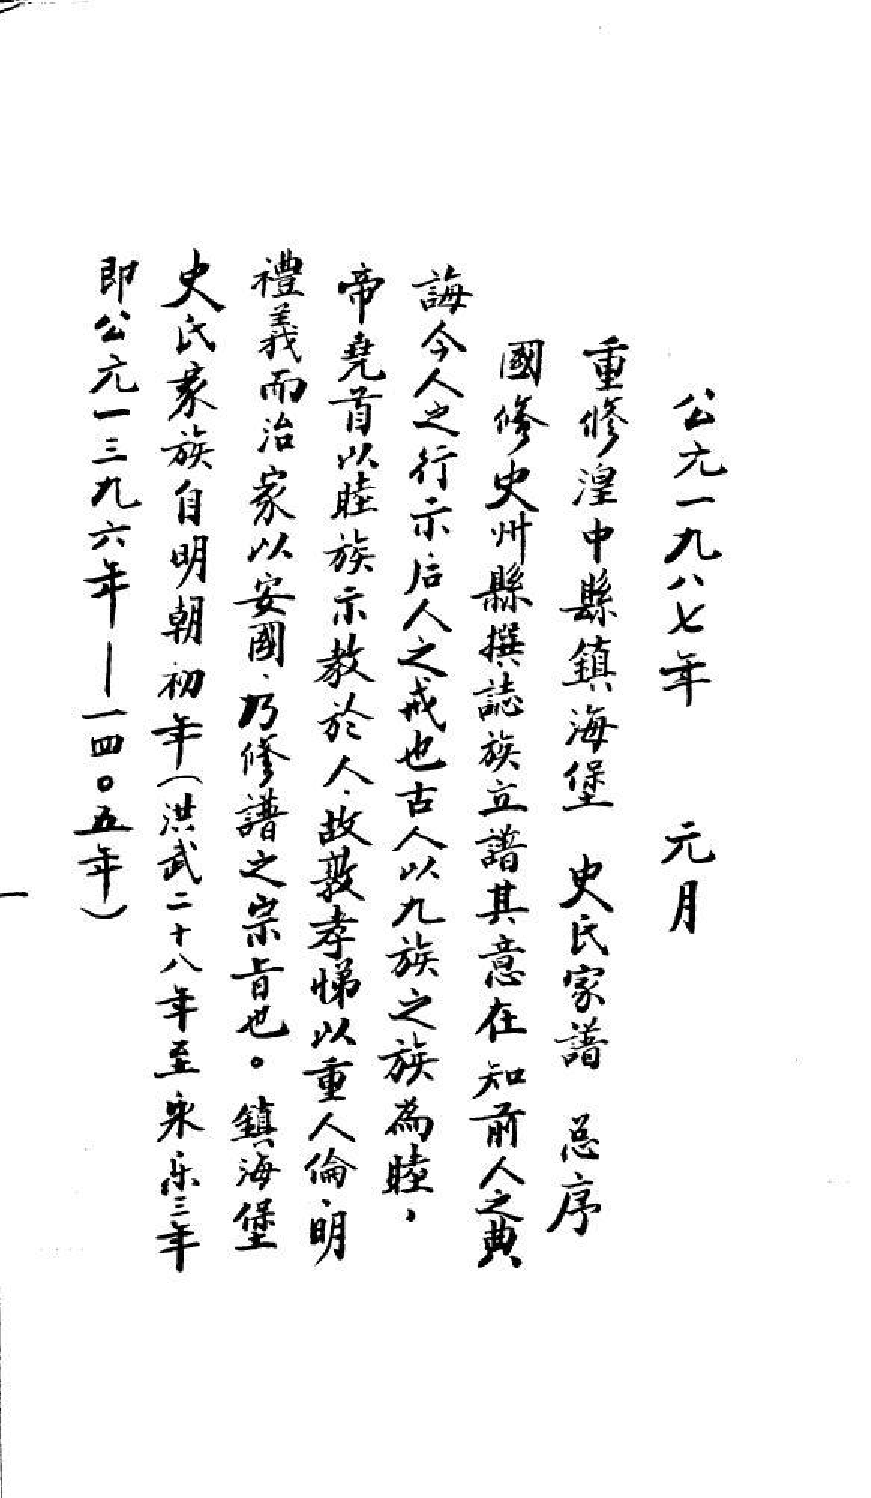 公元一九八七年 元月
重修湟中縣鎮海堡 史氏家譜 总序
國修史州縣撰誌族立譜其意在知前人之典
誨今人之行示后人之戒也古人以九族之族為睦，
帝堯首以睦族示教於人、故敦孝悌以重人倫、明
禮義而治家以安國、乃修譜之宗旨也。鎮海堡
史氏家族自明朝初年(洪武二十八年至永乐三年
即公元一三九六年—一四〇五年)
一